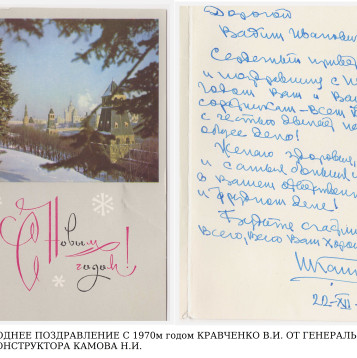 С Новым
годом!
Дорогой
Вадим Иванович
Сердечный приве
и поздравляю с
годом Вас и Ва
соратников – всем
с честью двигает
общее дело!
Желаю здоровья
и самых больших
в Вашем ответствен
и трудном деле!
Будьте счастли
всего, всего Вам хоро
22-XII-
ОДНЕЕ ПОЗДРАВЛЕНИЕ С 1970м годом КРАВЧЕНКО В.И. ОТ ГЕНЕРАЛЬ
ОНСТРУКТОРА КАМОВА Н.И.